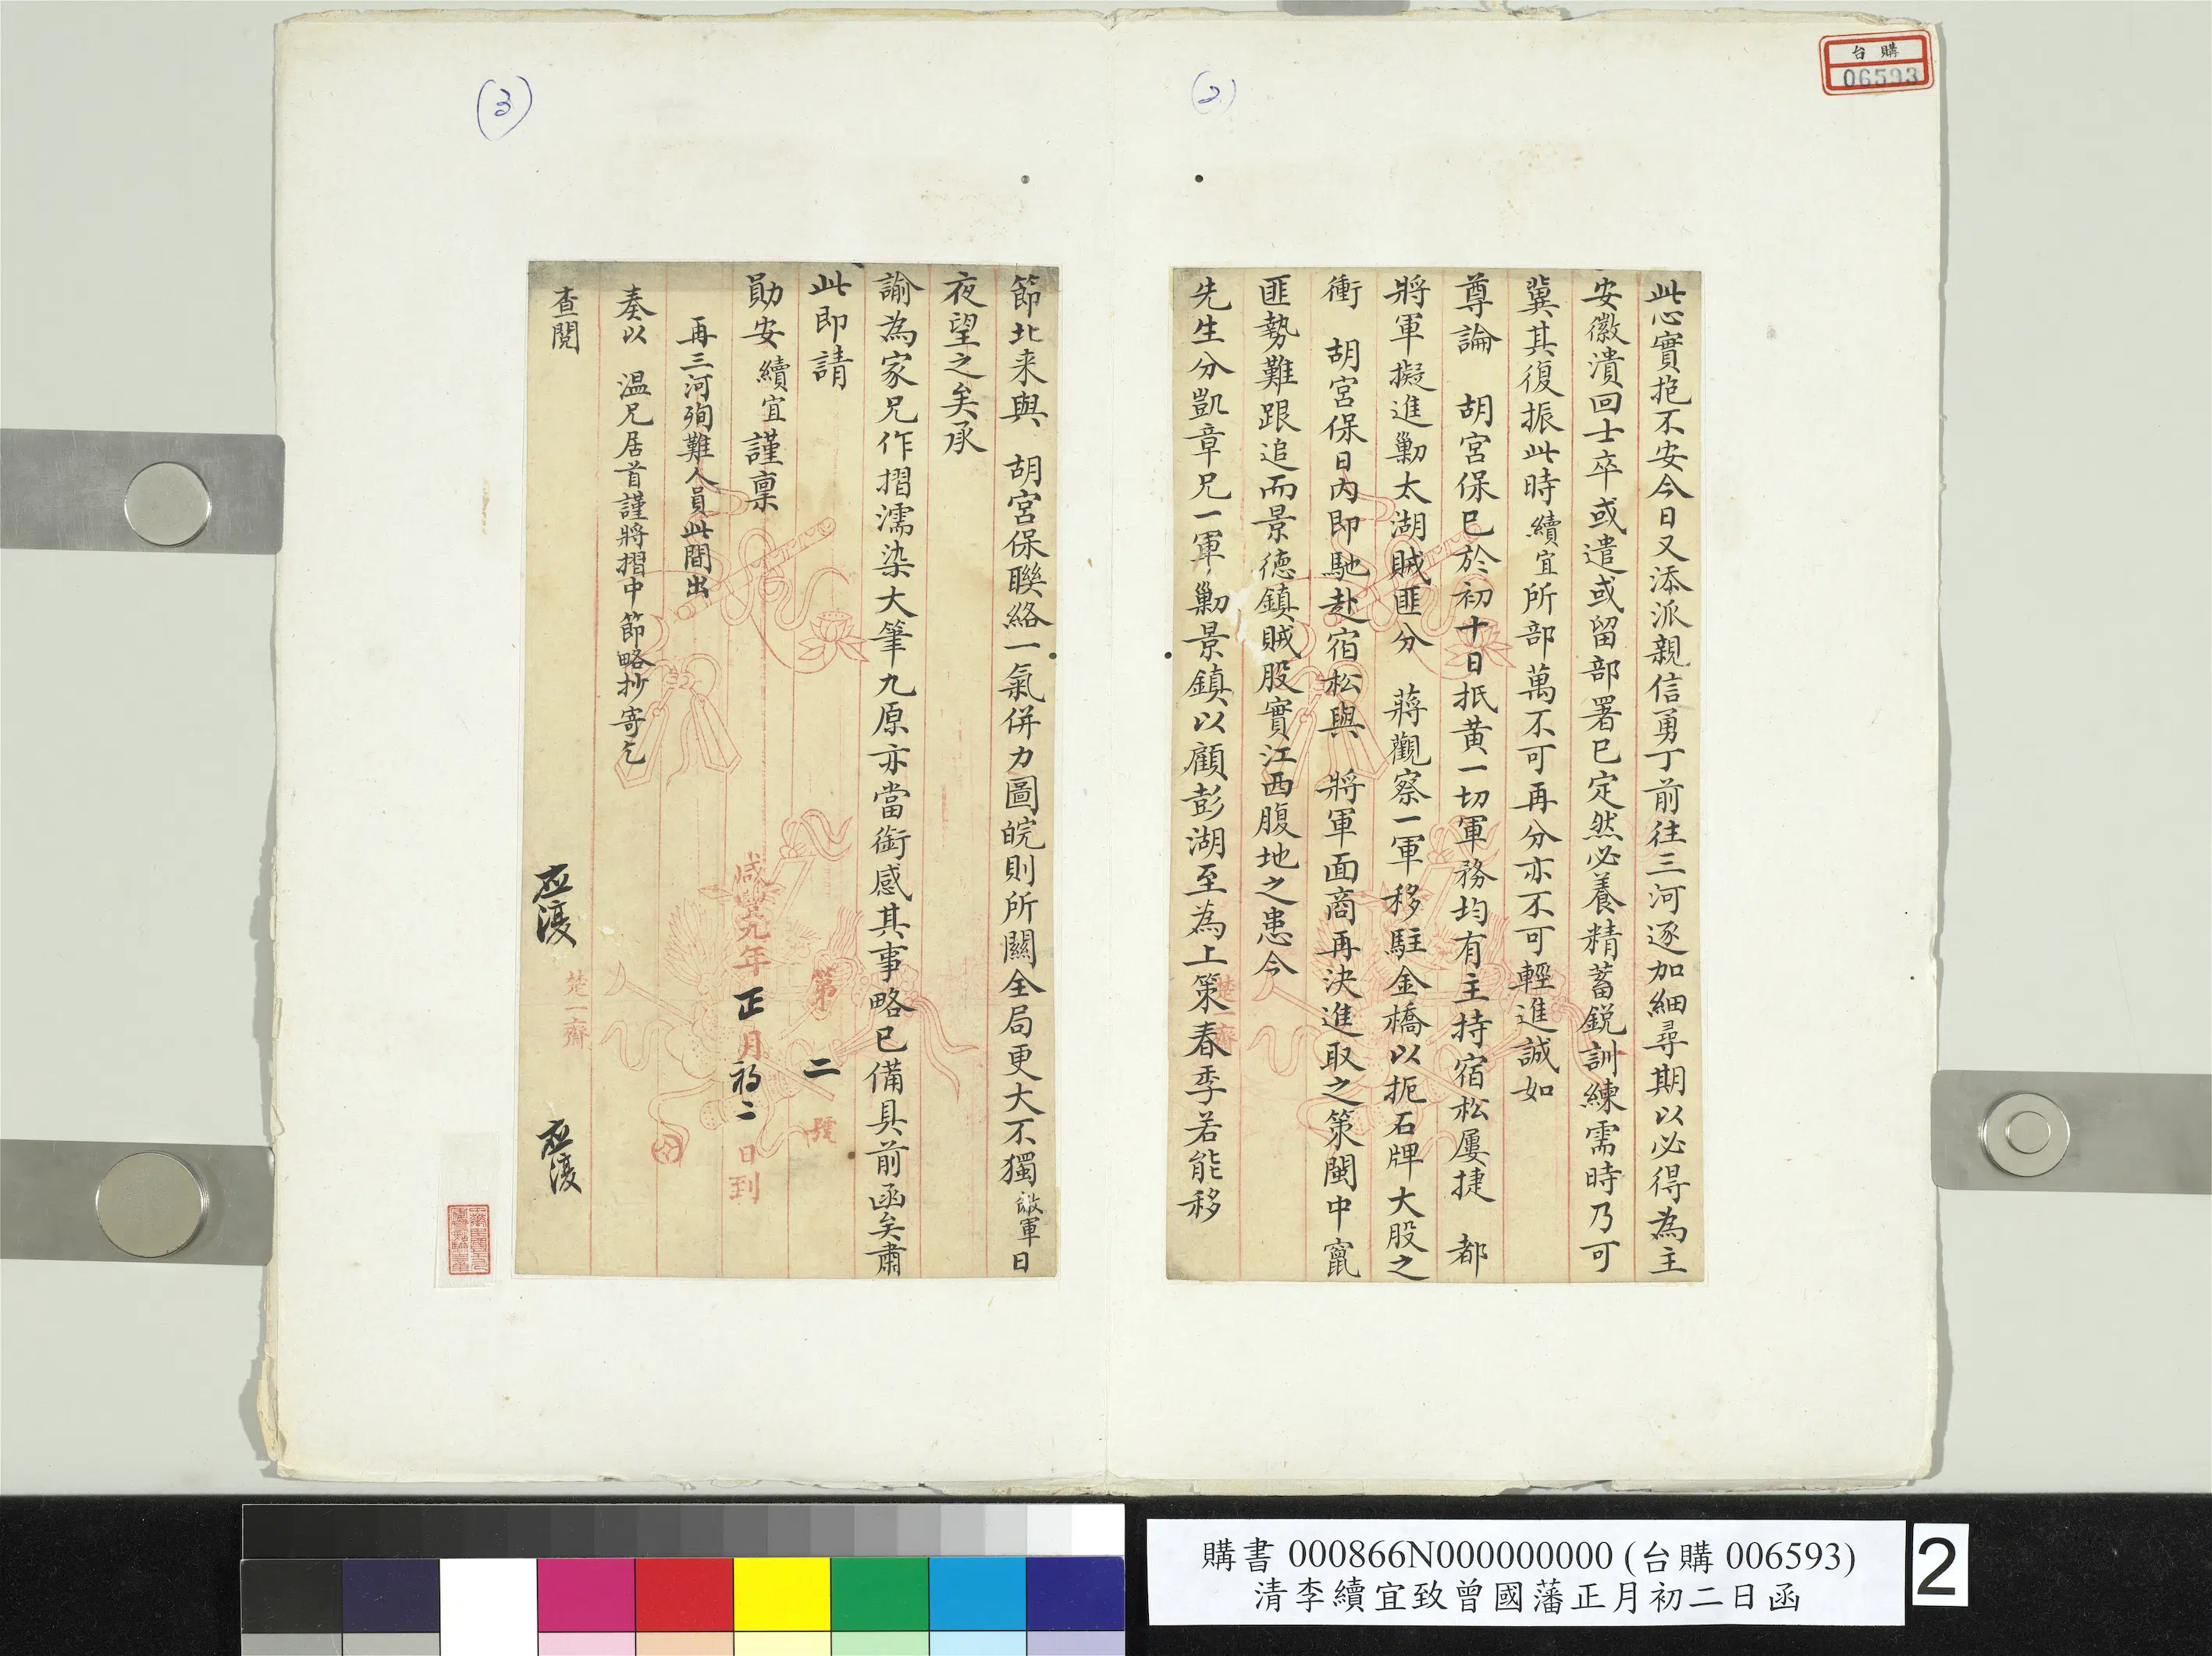 台購
06593
(2)
此心實抱不安今日又添派親信勇丁前往三河逐加細尋期以必得為主
安徽潰回士卒或遣或留部署已定然必養精蓄銳訓練需時乃可
冀其復振此時續宜所部萬不可再分亦不可輕進誠如
尊論 胡宮保已於初十日抵黃一切軍務均有主持宿松屢捷 都
將軍擬進勦太湖賊匪分 蔣觀察一軍移駐金橋以扼石牌大股之
衝 胡宮保日內即馳赴宿松與 將軍面商再決進取之策閩中竄
匪勢難跟追而景德鎮賊股實江西腹地之患今
先生分凱章兄一軍勦景鎮以顧彭湖至為上策春季若能移
楚一齋
(3)
節北来與 胡宮保聯絡一氣併力圖皖則所關全局更大不獨敝軍日
夜望之矣承
諭為家兄作摺濡染大筆九原亦當銜感其事略已備具前函矣肅
此即請
勛安 續宜謹稟
再三河殉難人員此間出
奏以 溫兄居首謹將摺中節略抄寄乞
查閱
第二號
咸豐九年正月初二日到
应復
应復
楚一齋
購書 000866N000000000 (台購 006593)
清李續宜致曾國藩正月初二日函
2